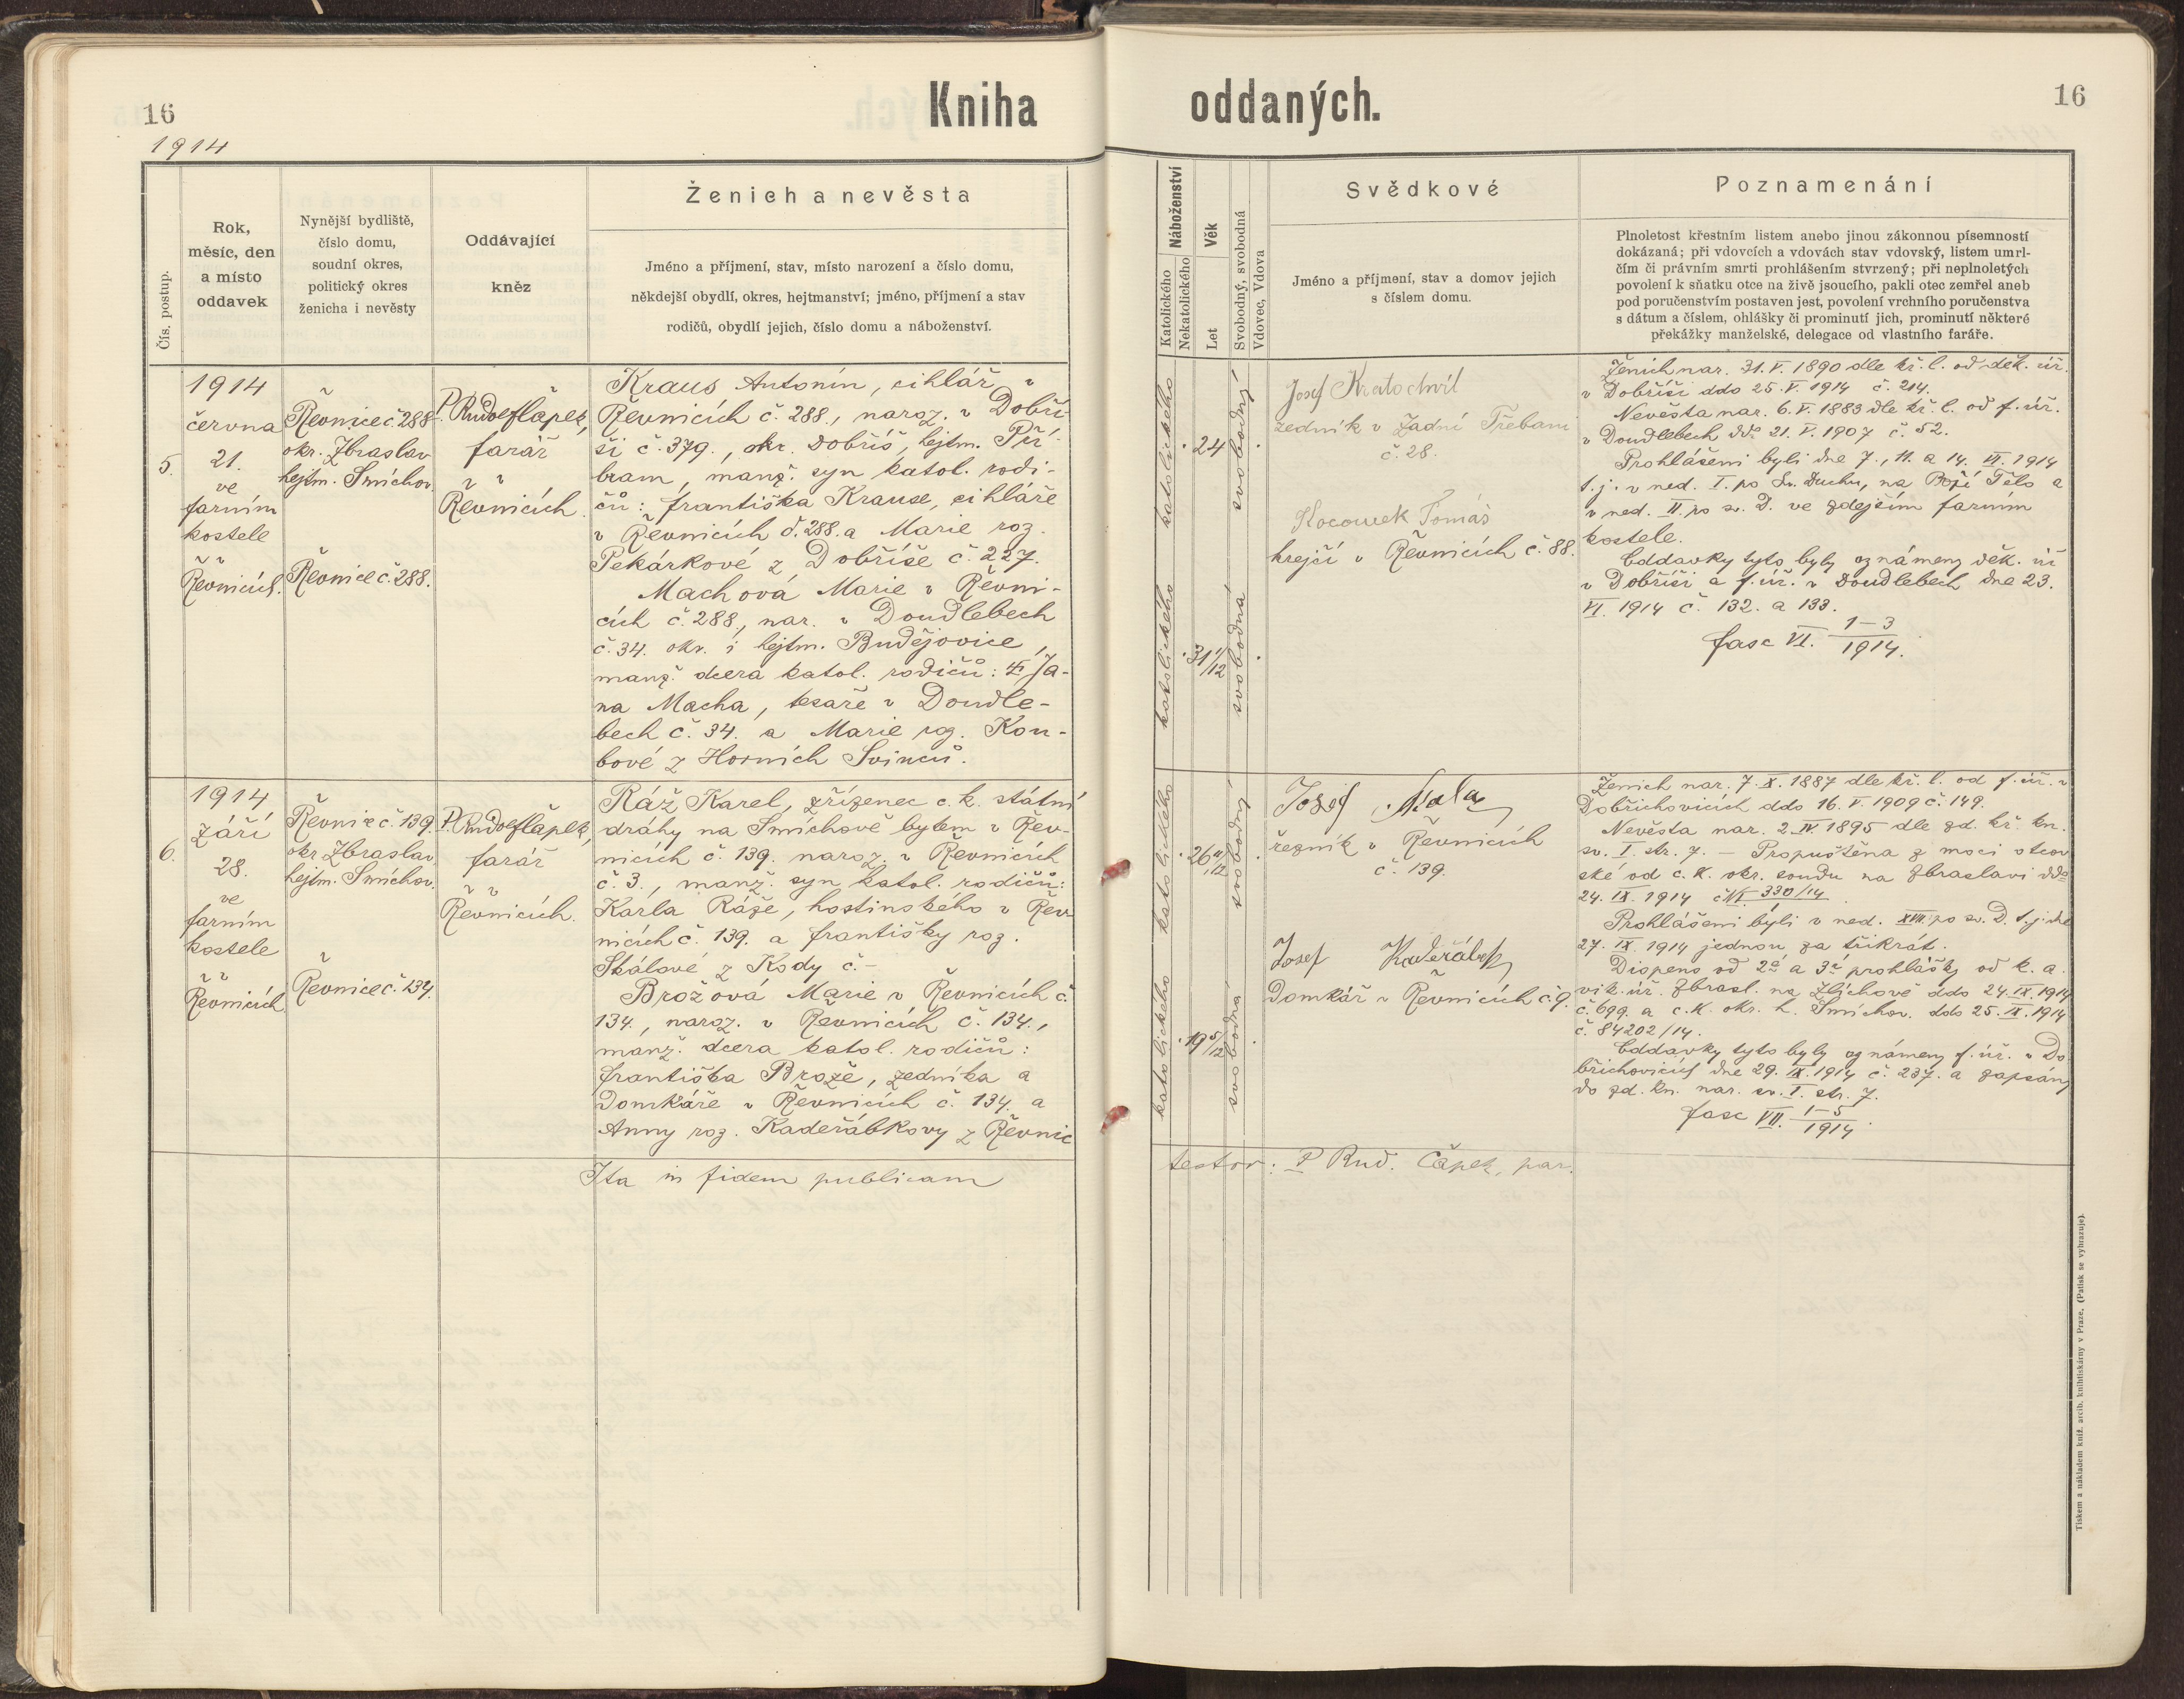 16
Kniha
1914
Čís. postup.
Rok,
měsíc, den
a místo
oddavek
Nynější bydliště,
číslo domu,
soudní okres,
politický okres
ženicha i nevěsty
Oddávající
kněz
Ženich a nevěsta
Jméno a příjmení, stav, místo narození a číslo domu,
někdejší obydlí, okres, hejtmanství; jméno, příjmení a stav
rodičů, obydlí jejich, číslo domu a náboženství.
5.
1914
června
21.
ve
farním
kostele
v
Řevnicích.
Řevnice č. 288
okr. Zbraslav
hejtm. Smíchov.
Řevnice č. 288.
P. Rudolf Čapek,
farář
v
Řevnicích.
Kraus Antonín, cihlář v
Řevnicích č. 288., naroz. v Dobří-
ši č. 379., okr. Dobříš, hejtm. Pří-
bram, manž. syn katol. rodi-
čů: Františka Krause, cihláře
v Řevnicích č. 288. a Marie roz.
Pekárkové z Dobříše č. 227.
Machová Marie v Řevni-
cích č. 288., nar. v Doudlebech
č. 34. okr. i hejtm. Budějovice,
manž. dcera katol. rodičů: Ja-
na Macha, tesaře v Doudle-
bech č. 34. a Marie roz. Kou-
bové z Horních Svinců.
6.
1914
září
28.
ve
farním
kostele
v
Řevnicích
Řevnice č. 139.
okr. Zbraslav,
hejtm. Smíchov.
Řevnice č. 134.
P. Rudolf Čapek,
farář
v
Řevnicích.
Ráž Karel, zřízenec c. k. státní
dráhy na Smíchově bytem v Řev-
nicích č. 139. naroz. v Řevnicích
č. 3., manž. syn katol. rodičů:
Karla Ráže, hostinského v Řev
nicích č. 139. a Františky roz.
Skálové z Kody č. –
Brožová Marie v Řevnicích č.
134., naroz. v Řevnicích č. 134.,
manž. dcera katol. rodičů:
Františka Brože, zedníka a
domkáře v Řevnicích č. 134. a
Anny roz. Kadeřábkovy z Řevnic
Ita in fidem publicam
16
oddaných.
Náboženství
Katolického
Nekatolického
Věk
Let
Svobodný, svobodná
Vdovec, Vdova
Svědkové
Jméno a příjmení, stav a domov jejich
s číslem domu.
Poznamenání
Plnoletost křestním listem anebo jinou zákonnou písemností
dokázaná; při vdovcích a vdovách stav vdovský, listem umrl-
čím či právním smrti prohlášením stvrzený; při neplnoletých
povolení k sňatku otce na živě jsoucího, pakli otec zemřel aneb
pod poručenstvím postaven jest, povolení vrchního poručenstva
s dátum a číslem, ohlášky či prominutí jich, prominutí některé
překážky manželské, delegace od vlastního faráře.
katolického
24
svobodný
katolického
31 1/12
svobodná
Josef Kratochvíl
zedník v Zadní Třebani
č. 28.
Kocourek Tomáš
krejčí v Řevnicích č. 88.
Ženich nar. 31. V. 1890 dle kř. l. od děk. úř.
v Dobříši ddo 25. V. 1914 č. 214.
Nevěsta nar. 6. V. 1883 dle kř. l. od f. úř.
v Doudlebech ddo 21. V. 1907 č. 52.
Prohlášeni byli dne 7., 11. a 14. VI. 1914
t. j. v ned. I. po sv. Duchu, na Boží Tělo a
v ned. II. po sv. D. ve zdejším farním
kostele.
Oddavky tyto byly oznámeny děk. úř
v Dobříši a f. úř. v Doudlebech dne 23.
VI. 1914 č. 132. a 133.
fasc VI. 1–3/1914.
katolického
26 11/12
svobodný
katolického
19 5/12
svobodná
Josef
řezník v Řevnicích
č. 139.
Josef Kadeřábek
Domkář v Řevnicích č. 9.
Ženich nar. 7. X. 1887 dle kř. l. od f. úř. v
Dobřichovicích ddo 16. V. 1909 č. 149.
Nevěsta nar. 2. IV. 1895 dle zd. kř. kn.
sv. I. str. 7. – Propuštěna z moci otcov
ské od c. k. okr. soudu na Zbraslavi ddo
24. IX. 1914 č. 330/14.
Prohlášeni byli v ned. XVII. po sv. D. t. j. dne
27. IX. 1914 jednou za třikrát.
Dispens od 2é a 3é prohlášky od k. a.
vik. úř. Zbrasl. na Zlíchově ddo 24. IX. 1914
č. 699. a c. k. okr. h. Smíchov. ddo 25. IX. 1914
č. 84202/14.
Oddavky tyto byly oznámeny f. úř. v Do
břichovicích dne 29. IX. 1914 č. 237. a zapsány
do zd. kn. nar. sv. I. str. 7.
fasc VII. 1–5/1914.
testor: P Rud. Čapek, par.
Tiskem a nákladem kníž. arcib. knihtiskárny v Praze. (Patisk se vyhrazuje).